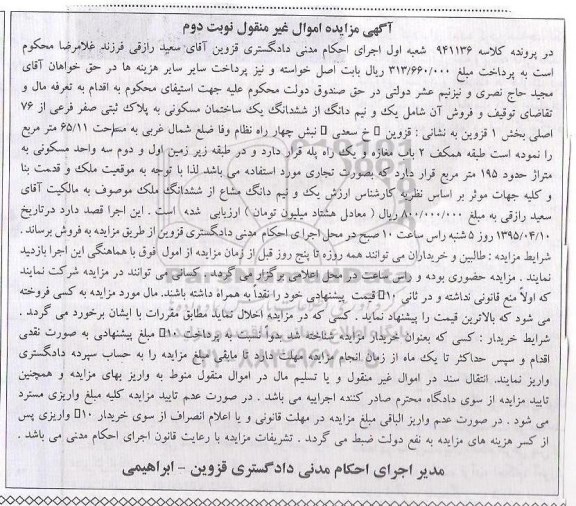 آگهی مزایده اموال غیر منقول نوبت دوم
در پرونده کلاسه ۹۴۱۱۳۶ شعبه اول اجرای احکام مدنی دادگستری قزوین آقای سعید رازقی فرزند غلامرضا محکوم
است به پرداخت مبلغ ۳۱۳/۶۶۰/۰۰۰ ریال بابت اصل خواسته و نیز پرداخت سایر سایر هزینه ها در حق خواهان آقای
مجید حاج نصری و نیزنیم عشر دولتی در حق صندوق دولت محکوم علیه جهت استیفای محکوم به اقدام به تعرفه مال و
تقاضای توقیف و فروش آن شامل یک و نیم دانگ از ششدانگ یک ساختمان مسکونی به پلاک ثبتی صفر فرعی از ۷۶
اصلی بخش ۱ قزوین به نشانی : قزوین خ سعدی نبش چهار راه نظام وفا ضلع شمال غربی به مساحت ۶۵/۱۱ متر مربع
را نموده است طبقه همکف ۲ باب مغازه و یک راه پله قرار دارد و در طبقه زیر زمین اول و دوم سه واحد مسکونی به
متراژ حدود ۱۹۵ متر مربع قرار دارد که بصورت تجاری مورد استفاده می باشد لذا با توجه به موقعیت ملک و قدمت بنا
و کلیه جهات موثر بر اساس نظریه کارشناس ارزش یک و نیم دانگ مشاع از ششدانگ ملک موصوف به مالکیت آقای
سعید رازقی به مبلغ ۸۰۰/۰۰۰/۰۰۰ ریال ( معادل هشتاد میلیون تومان ) ارزیابی شده است . این اجرا قصد دارد درتاریخ
۱۳۹۵/۰۴/۱۰ روز ۵ شنبه راس ساعت ۱۰ صبح در محل اجرای احکام مدنی دادگستری قزوین از طریق مزایده به فروش برساند .
شرایط مزایده : طالبین و خریداران می توانند همه روزه تا پنج روز قبل از زمان مزایده از اموال فوق با هماهنگی این اجرا بازدید
نمایند . مزایده حضوری بوده و راس ساعت در محل اعلامی برگزار می گردد . کسانی می توانند در مزایده شرکت نمایند
که اولاً منع قانونی نداشته و در ثانی ۱۰ قیمت پیشنهادی خود را نقداً به همراه داشته باشند. مال مورد مزایده به کسی فروخته
می شود که بالاترین قیمت را پیشنهاد نماید . کسی که در مزایده اخلال نماید مطابق مقررات با ایشان برخورد می گردد .
شرایط خریدار : کسی که بعنوان خریدار مزایده شناخته شد بدواً نسبت به پرداخت ۱۰ مبلغ پیشنهادی به صورت نقدی
اقدام و سپس حداکثر تا یک ماه از زمان انجام مزایده مهلت دارد تا مابقی مبلغ مزایده را به حساب سپرده دادگستری
واریز نمایند. انتقال سند در اموال غیر منقول و یا تسلیم مال در اموال منقول منوط به واریز بهای مزایده و همچنین
تایید مزایده از سوی دادگاه محترم صادر کننده اجراییه می باشد . در صورت عدم تایید مزایده کلیه مبلغ واریزی مسترد
می شود . در صورت عدم واریز الباقی مبلغ مزایده در مهلت قانونی و یا اعلام انصراف از سوی خریدار ۱۰ واریزی پس
از کسر هزینه های مزایده به نفع دولت ضبط می گردد . تشریفات مزایده با رعایت قانون اجرای احکام مدنی می باشد .
مدیر اجرای احکام مدنی دادگستری قزوین - ابراهیمی